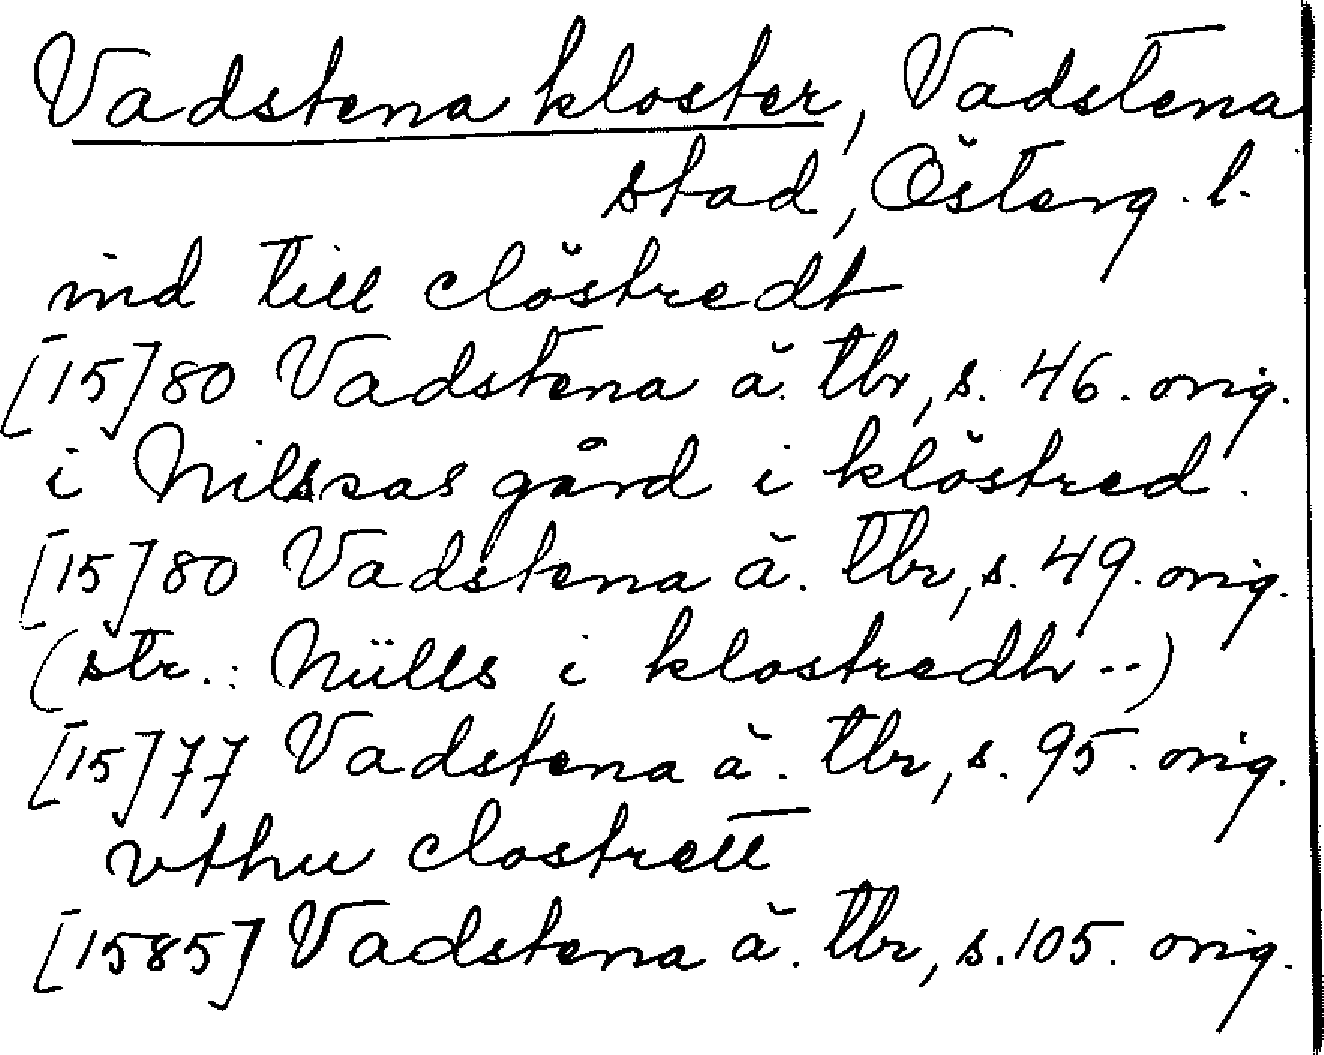 Vadstena kloster, Vadstena
stad, Österg. l.
ind till clöstredt
[15]80 Vadstena ä. tbr, s. 46. orig.
i Nilssas gård i klöstred.
[15]80 Vadstena ä. tbr, s. 49. orig.
(str.: Niills i klostredh --)
[15]77 Vadstena ä. tbr, s. 95. orig.
vthu clostrett
[1585] Vadstena ä. tbr, s. 105. orig.